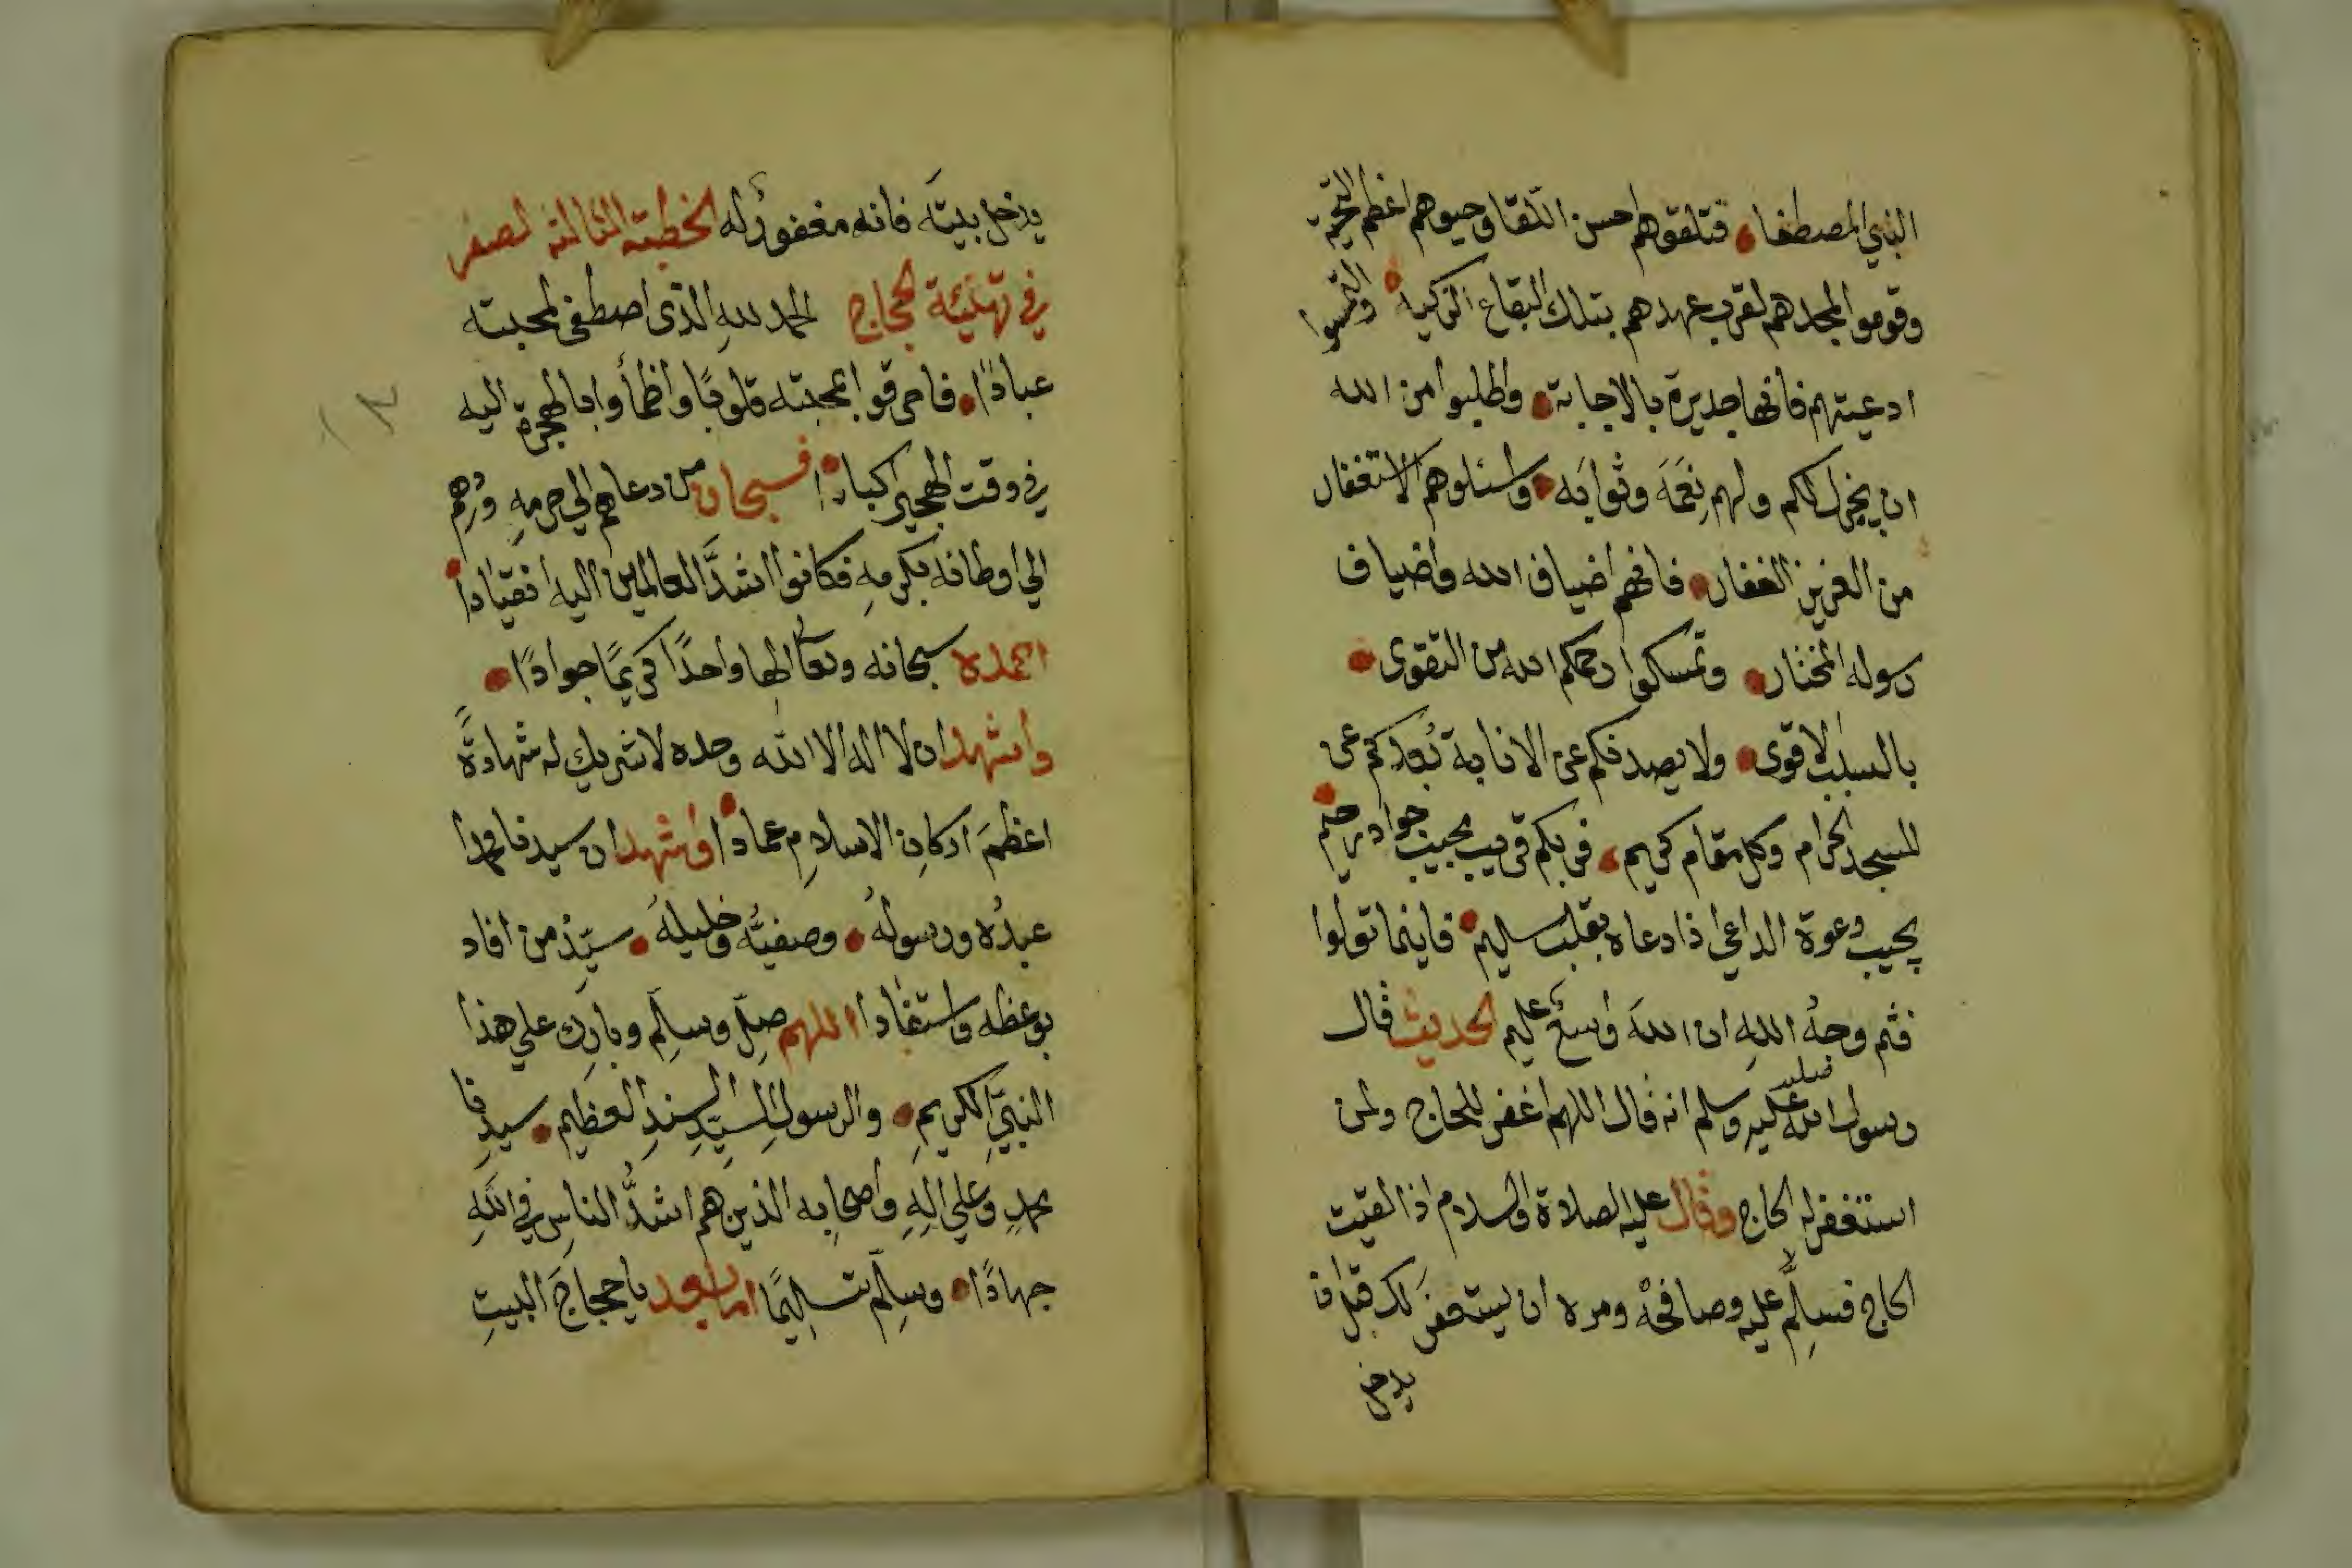 النبي المصطفا • فتلقوهم احسن التلقا وحيوهم اعظم التحية
وقوموا لمجدهم لقرب عهدهم بتلك البقاع الزكية • والتمسوا
ادعيتهم فانها جديرة بالاجابة • واطلبوا من الله
ان يجزل لكم ولهم نِعَمَه وثوابَه • واسئلوهم الاستغفار
من العزيز الغفار • فانهم اضياف الله واضياف
رسوله المختار • وتمسكوا رحمكم الله من التقوى •
بالسبب الاقوى • ولا يصدنكم عن الانابة بُعدكم عن
المسجد الحرام وكل مقام كريم • فربكم قريب مجيب جواد رحيم •
يجيب دعوة الداعي اذا دعاه بقلب سليم • فاينما تولوا
فثم وجهُ اللهِ ان اللهَ واسعٌ عليم الحديث قال
رسول الله صلى الله عليه وسلم انه قال اللهم اغفر للحاج ولمن
استغفر له الحاج وقال عليه الصلاة والسلام اذا لقيت
الحاج فسلِّم عليه وصافحْه ومره ان يستغفرَ لك قبل ان
يدخل
يدخل بيتَه فانه مغفورٌ له الخطبة الثالثة لصفر
في تهنئة الحجاج الحمد للهِ الذى اصطفى لمحبته
عبادًا • فاحرقوا بمحبته قلوبًا واظمأوا بالهجرة اليه
في وقت الهجير اكبادا • فسبحان من دعاهم الي حرمهِ وردهم
الي اوطانه بكرمهِ فكانوا اشدَّ العالمين اليه انقيادًا •
احمده سبحانه وتعالى الها واحدًا كريمًا جوادًا •
واشهد ان لا اله الا الله وحده لا شريك له شهادةً
اعظمَ اركانِ الاسلامِ عمادًا • واشهد ان سيدنا محمدا
عبدُه ورسولُه • وصفيُّه وخليلُه • سيّدُ من افاد
بوعظه واستفادا اللهم صلِّ وسلِّم وبارِك علي هذا
النبيِّ الكريمِ • والرسولِ السيّدِ السندِ العظيمِ • سيدِنا
محمدٍ وعلي الهِ واصحابِه الذين هم اشدُّ الناسِ في اللهِ
جهادًا • وسلِّم تسليمًا اما بعد يا حجاجَ البيتِ
١٣